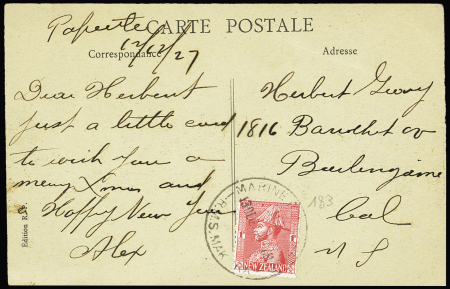 Papeete
12/12/27
CARTE POSTALE
Correspondance
Adresse
Dear Herbert
Just a little card
to wish you a
merry Xmas and
Happy New Year
Alex
Herbert
1816
Burlingame
Cal
U S
183
MARINE
R.M.S. MAK
NEW ZEALAND
Édition R.P.